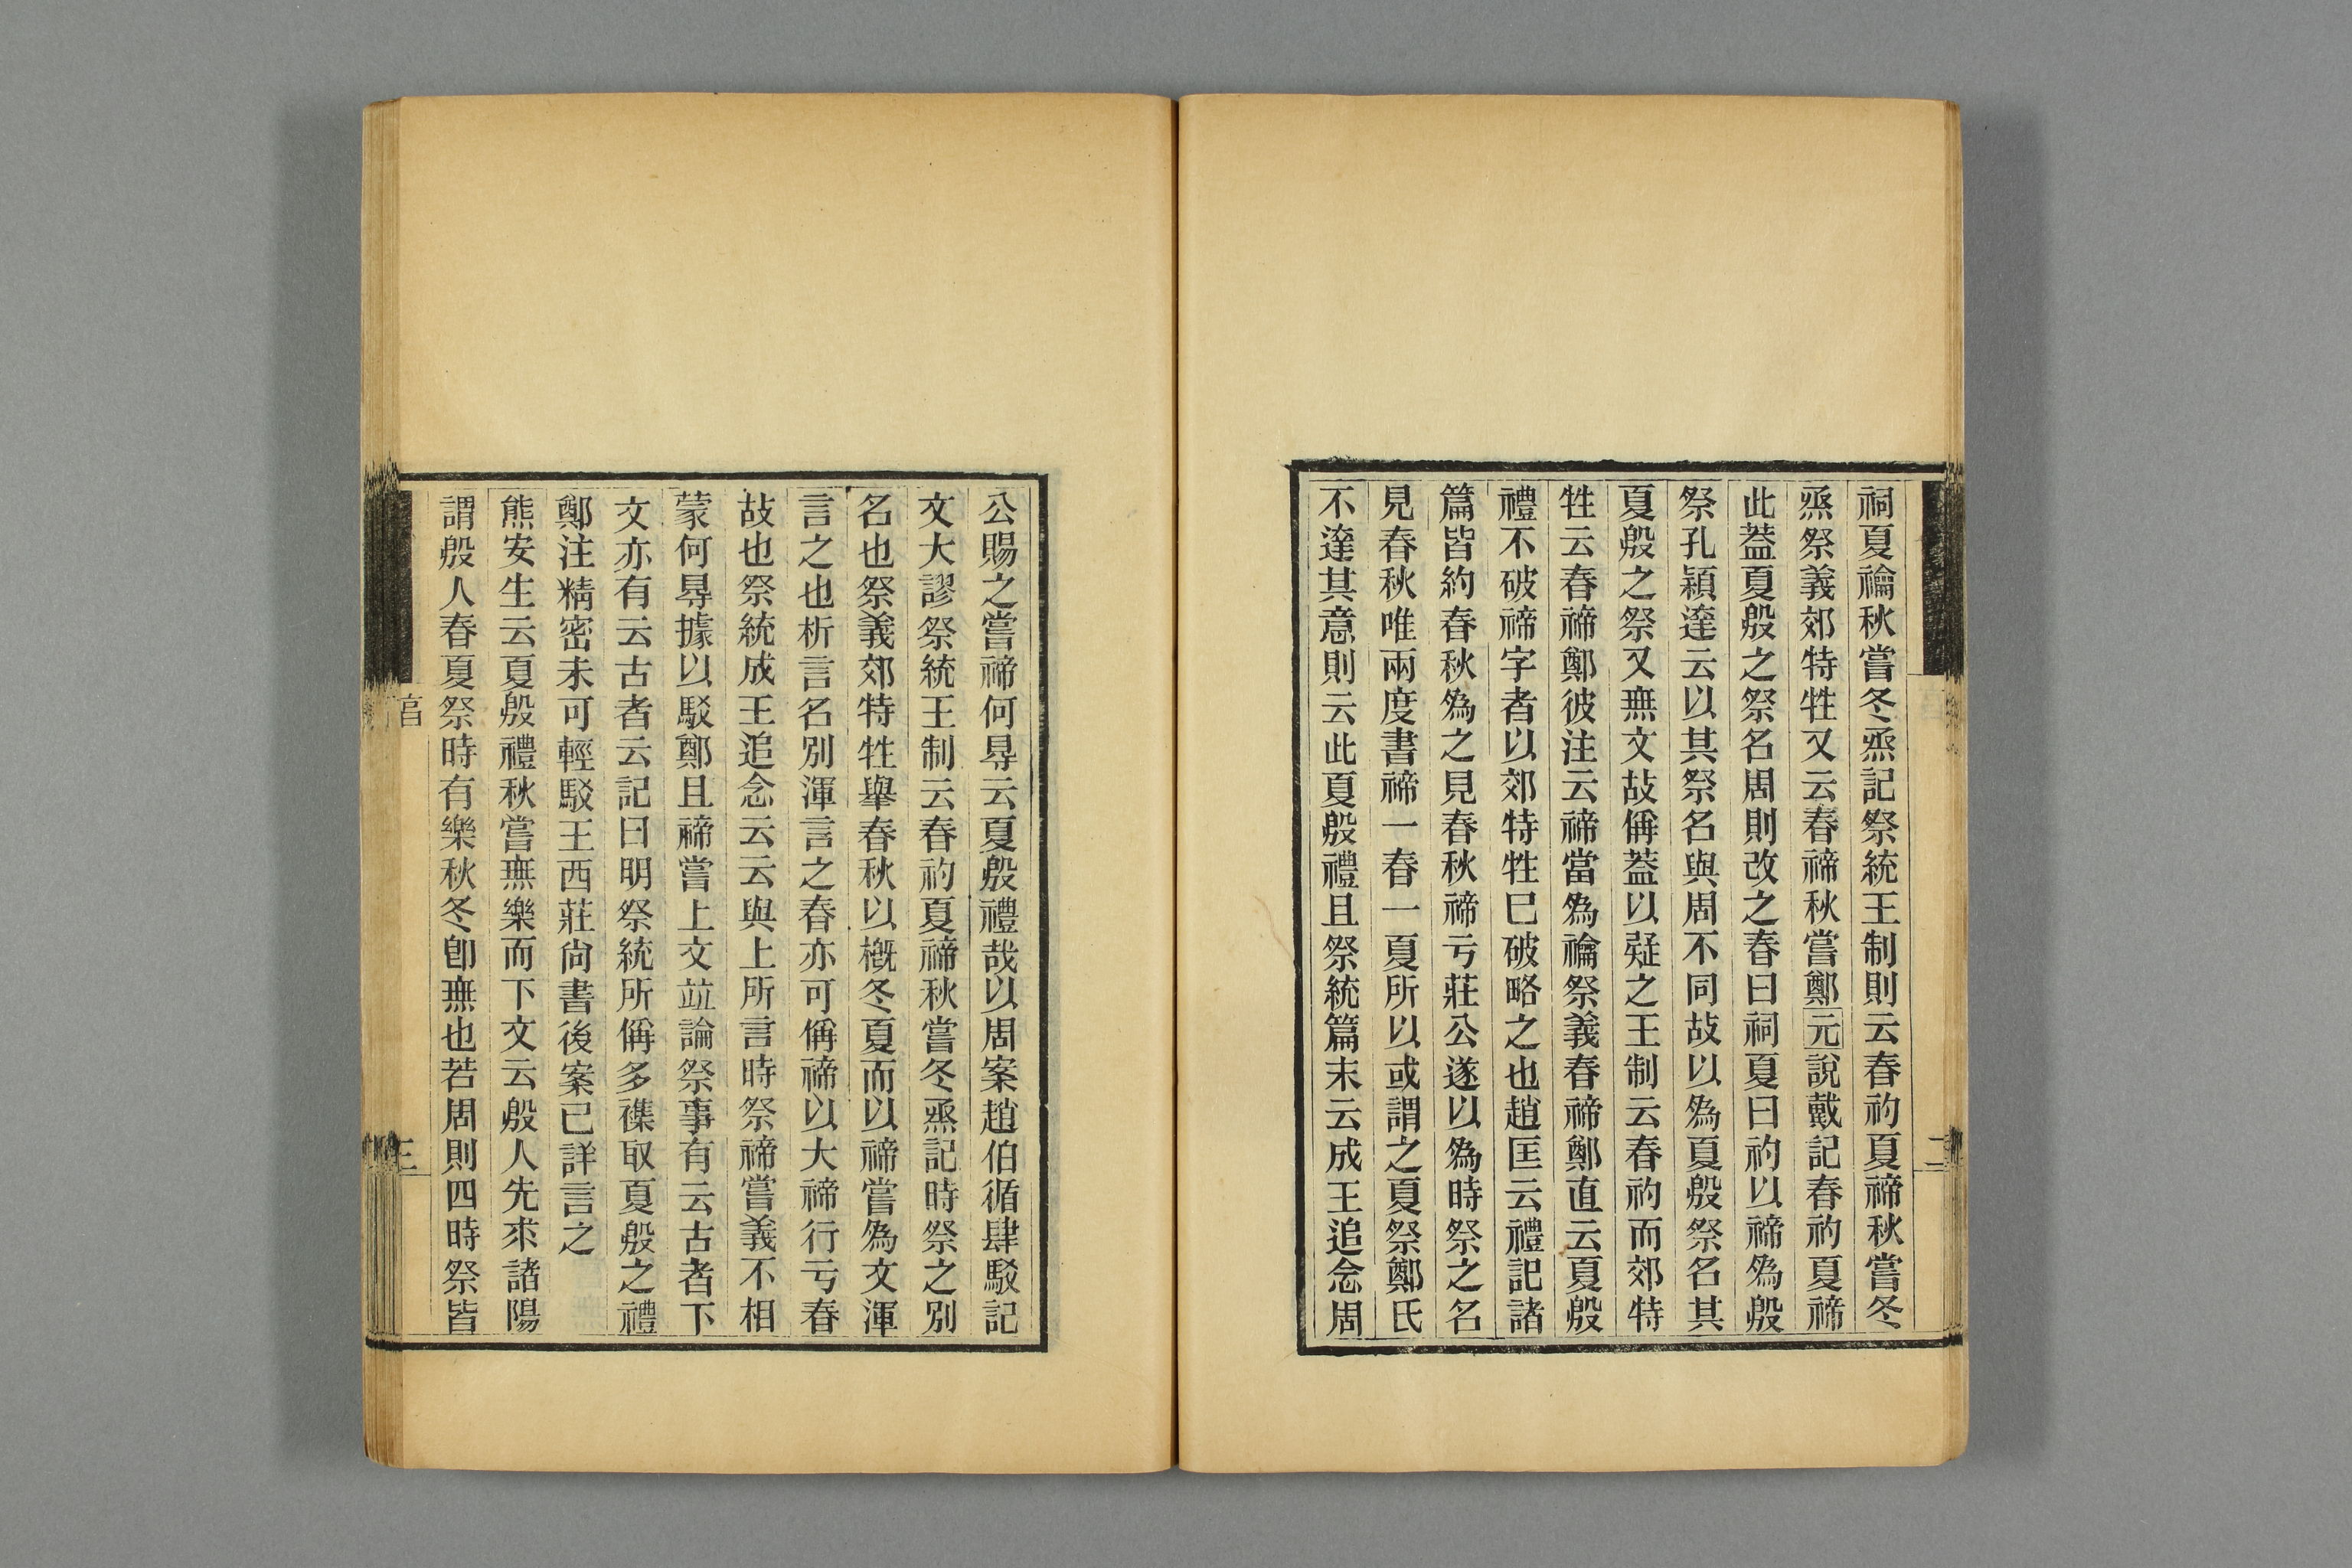 祠夏禴秋嘗冬烝記祭統王制則云春礿夏禘秋嘗冬
烝祭義郊特牲又云春禘秋嘗鄭元說戴記春礿夏禘
此葢夏殷之祭名周則改之春曰祠夏曰礿以禘爲殷
祭孔穎達云以其祭名與周不同故以爲夏殷祭名其
夏殷之祭又無文故偁葢以疑之王制云春礿而郊特
牲云春禘鄭彼注云禘當爲禴祭義春禘鄭直云夏殷
禮不破禘字者以郊特牲巳破略之也趙匡云禮記諸
篇皆約春秋爲之見春秋禘亏莊公遂以爲時祭之名
見春秋唯兩度書禘一春一夏所以或謂之夏祭鄭氏
不達其意則云此夏殷禮且祭統篇末云成王追念周
公賜之嘗禘何㝵云夏殷禮哉以周案趙伯循肆駁記
文大謬祭統王制云春礿夏禘秋嘗冬烝記時祭之別
名也祭義郊特牲舉春秋以槪冬夏而以禘嘗爲文渾
言之也析言名別渾言之春亦可偁禘以大禘行亏春
故也祭統成王追念云云與上所言時祭禘嘗義不相
蒙何㝵據以駁鄭且禘嘗上文竝論祭事有云古者下
文亦有云古者云記曰明祭統所偁多襍取夏殷之禮
鄭注精密未可輕駁王西莊尙書後案已詳言之
熊安生云夏殷禮秋嘗無樂而下文云殷人先求諸陽
謂殷人春夏祭時有樂秋冬卽無也若周則四時祭皆
二
三